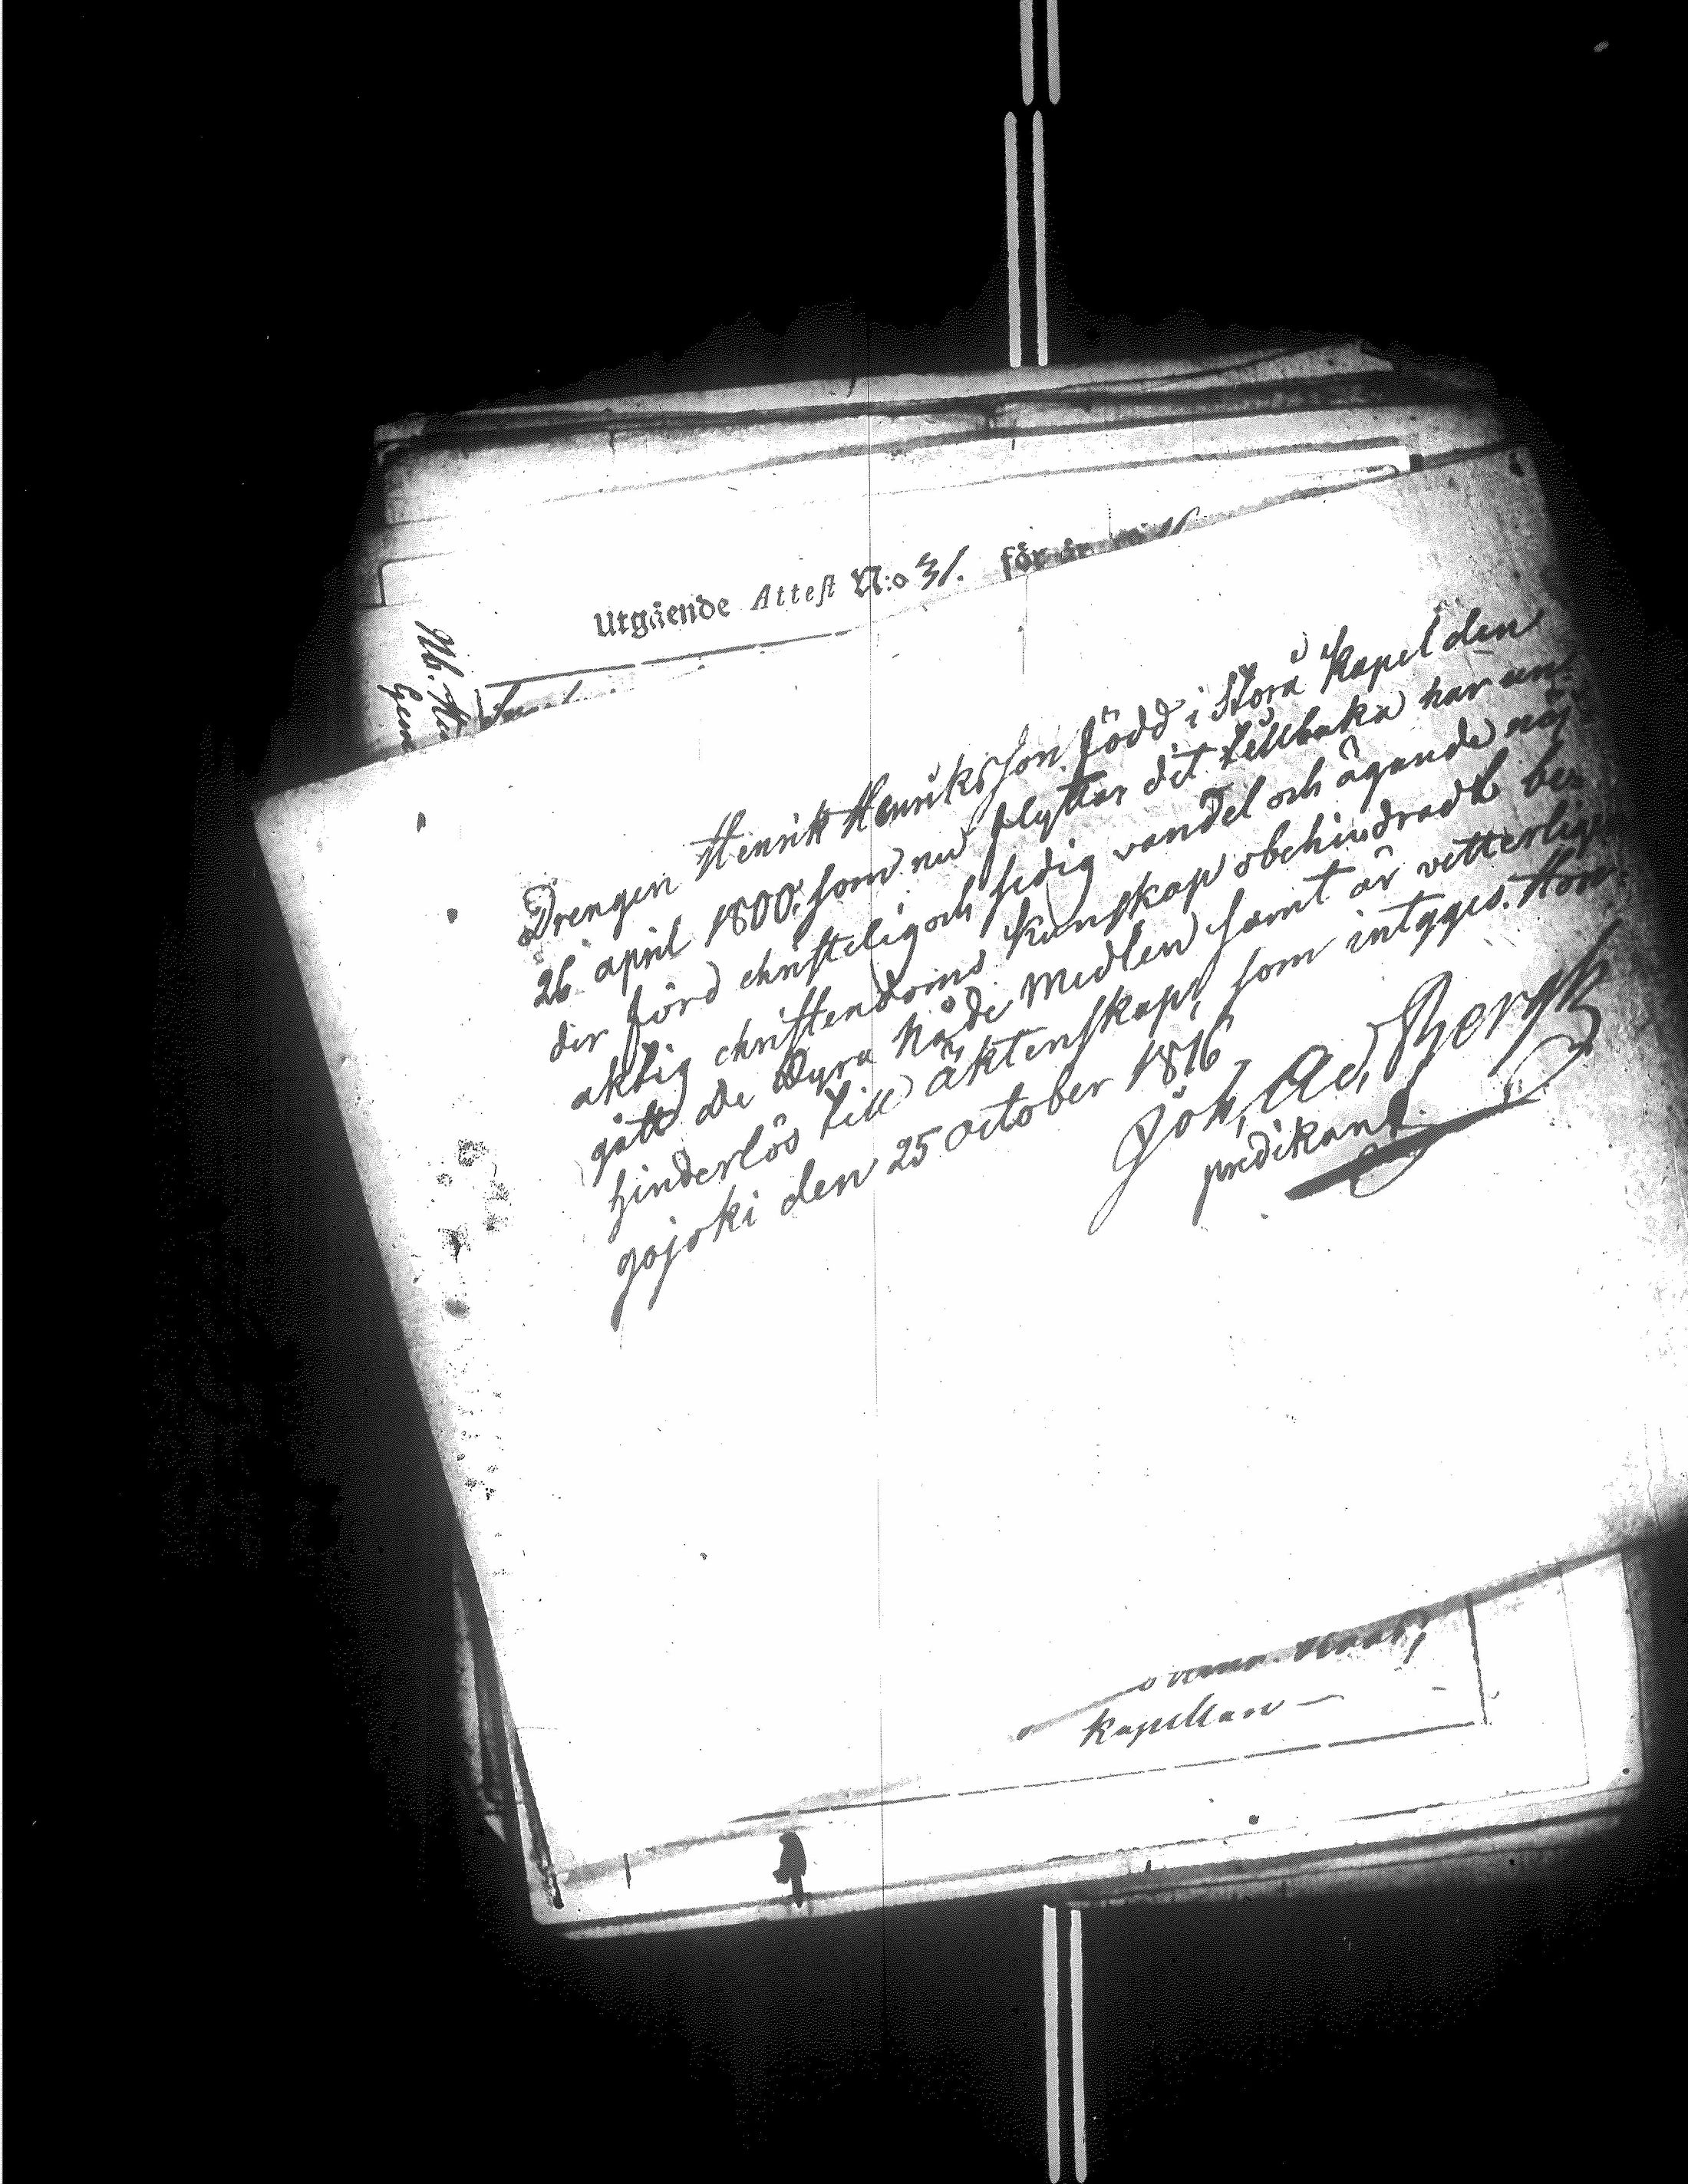 Utgående Attest N:o 31. för år
Nb.
Drengen Henrik Henriksson, född i Storå Kapel den
26 april 1800, som nu flyttar dit tillbaka har un-
der förd christelig och sedig vandel och ägande nöj-
aktig christendoms kunskap obehindradt be-
gått de Dyra Nåde Medlen samt är vetterligen
hinderlös till äktenskap, som intygas. Hon-
gojoki den 25 October 1816
Joh. Ad. Bergh
predikant.
Kapellan